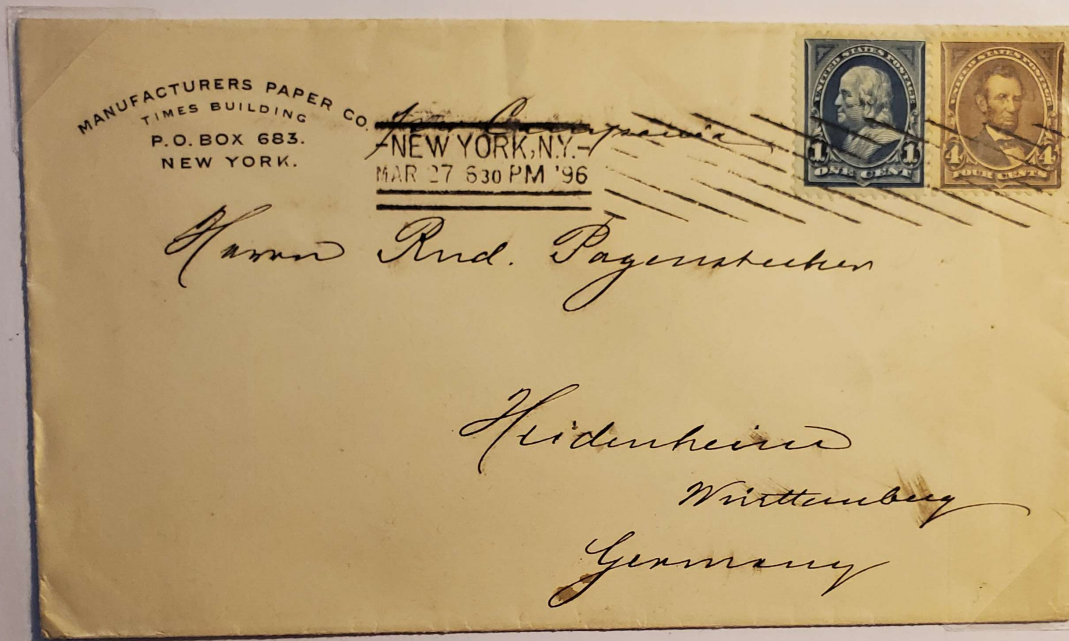 MANUFACTURERS PAPER CO.
TIMES BUILDING
P.O. BOX 683.
NEW YORK.
per Campania
NEW YORK, N.Y.
MAR 27 630 PM '96
UNITED STATES POSTAGE
1 1
ONE CENT
UNITED STATES POSTAGE
4 4
FOUR CENTS
Herrn Rud. Pagenstecher
Heidenheim
Württemberg
Germany